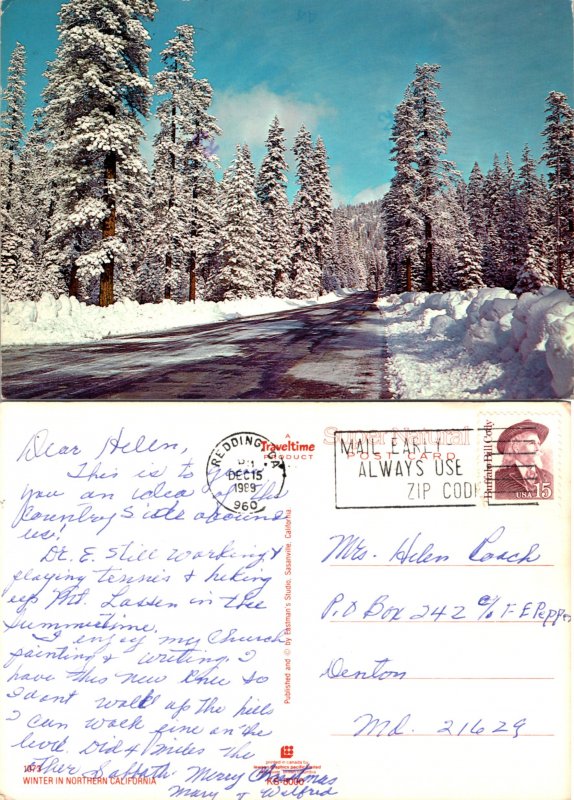 Dear Helen,
This is to give
you an idea of the
Country Side around
us.
Dr. E. Still working &
playing tennis & hiking
up Mt. Lassen in the
Summertime.
I enjoy my Church
painting & writing. I
have this new knee so
I dont walk up the hills
I can walk fine on the
level. Did 4 miles the
other Sabbath. Merry Christmas
Mary & Wilfred
1073
WINTER IN NORTHERN CALIFORNIA
REDDING, CA
PM
DEC 15
1989
960
A
Traveltime
PRODUCT
Super Natural
POST CARD
MAIL EARLY
ALWAYS USE
ZIP CODE
Buffalo Bill Cody
USA 15
Published and © by Eastman's Studio, Susanville, California.
Mrs. Helen Roach
P.O Box 242 c/o F E Pepper
Denton
Md. 21629
printed in canada by